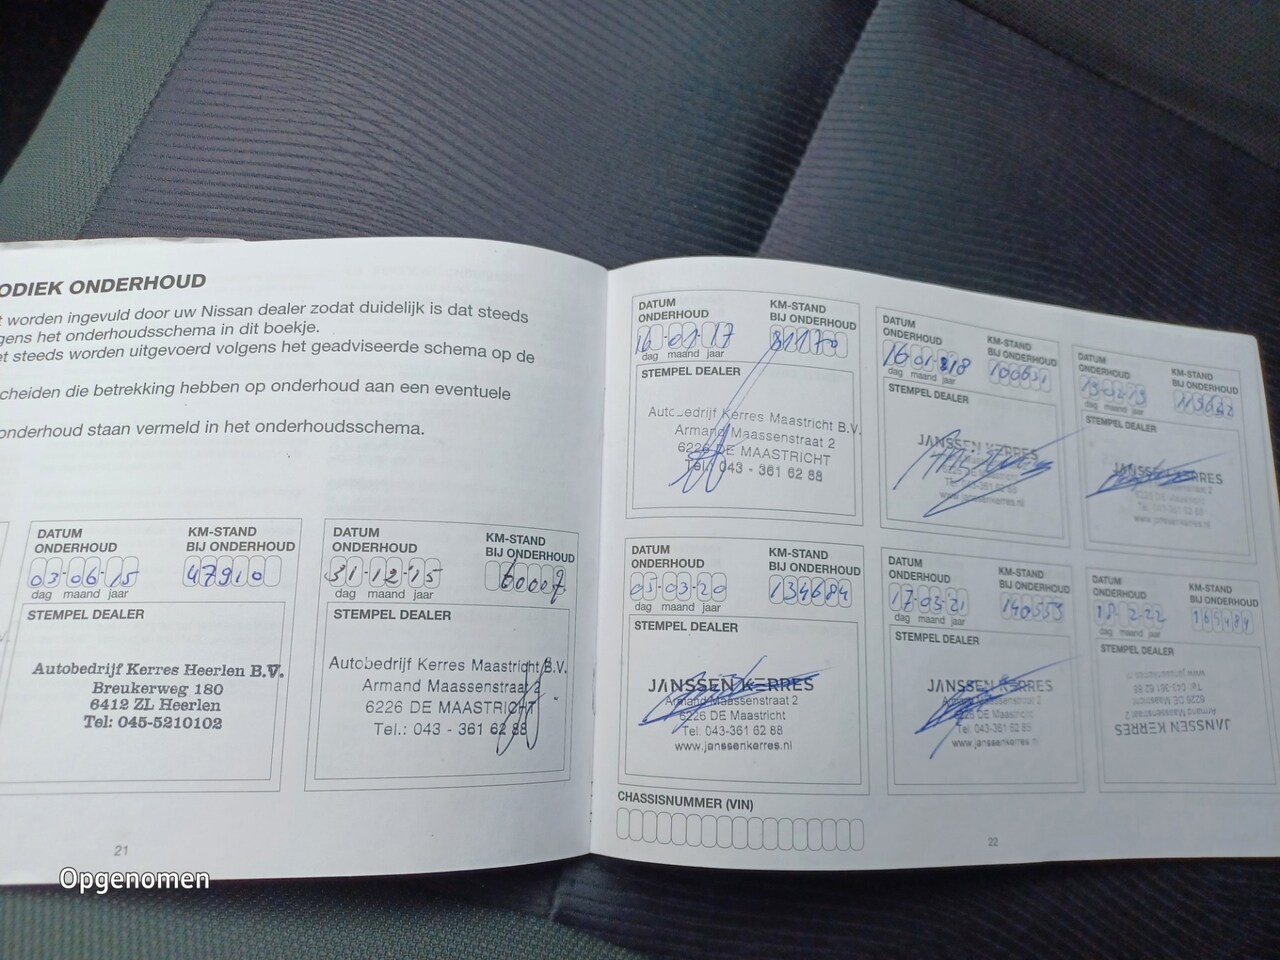 ODIEK ONDERHOUD
t worden ingevuld door uw Nissan dealer zodat duidelijk is dat steeds
gens het onderhoudsschema in dit boekje.
et steeds worden uitgevoerd volgens het geadviseerde schema op de
cheiden die betrekking hebben op onderhoud aan een eventuele
onderhoud staan vermeld in het onderhoudsschema.
DATUM ONDERHOUD
KM-STAND BIJ ONDERHOUD
03-06-15
47910
dag maand jaar
STEMPEL DEALER
Autobedrijf Kerres Heerlen B.V.
Breukerweg 180
6412 ZL Heerlen
Tel: 045-5210102
DATUM ONDERHOUD
KM-STAND BIJ ONDERHOUD
31-12-15
60007
dag maand jaar
STEMPEL DEALER
Autobedrijf Kerres Maastricht B.V.
Armand Maassenstraat 2
6226 DE MAASTRICHT
Tel.: 043 - 361 62 88
21
DATUM ONDERHOUD
KM-STAND BIJ ONDERHOUD
16-01-17
81170
dag maand jaar
STEMPEL DEALER
Autobedrijf Kerres Maastricht B.V.
Armand Maassenstraat 2
6226 DE MAASTRICHT
Tel.: 043 - 361 62 88
DATUM ONDERHOUD
KM-STAND BIJ ONDERHOUD
16-01-18
100651
dag maand jaar
STEMPEL DEALER
JANSSEN KERRES
Tel: 043-361 62 88
www.janssenkerres.nl
DATUM ONDERHOUD
KM-STAND BIJ ONDERHOUD
dag maand jaar
STEMPEL DEALER
JANSSEN KERRES
6226 DE Maastricht
Tel: 043-361 62 88
www.janssenkerres.nl
DATUM ONDERHOUD
KM-STAND BIJ ONDERHOUD
05-03-20
134684
dag maand jaar
STEMPEL DEALER
JANSSEN KERRES
Armand Maassenstraat 2
6226 DE Maastricht
Tel: 043-361 62 88
www.janssenkerres.nl
DATUM ONDERHOUD
KM-STAND BIJ ONDERHOUD
17-03-21
140555
dag maand jaar
STEMPEL DEALER
JANSSEN KERRES
6226 DE Maastricht
Tel: 043-361 62 88
www.janssenkerres.nl
DATUM ONDERHOUD
KM-STAND BIJ ONDERHOUD
18-2-22
dag maand jaar
STEMPEL DEALER
JANSSEN KERRES
Armand Maassenstraat 2
6226 DE Maastricht
Tel: 043-361 62 88
www.janssenkerres.nl
CHASSISNUMMER (VIN)
22
Opgenomen